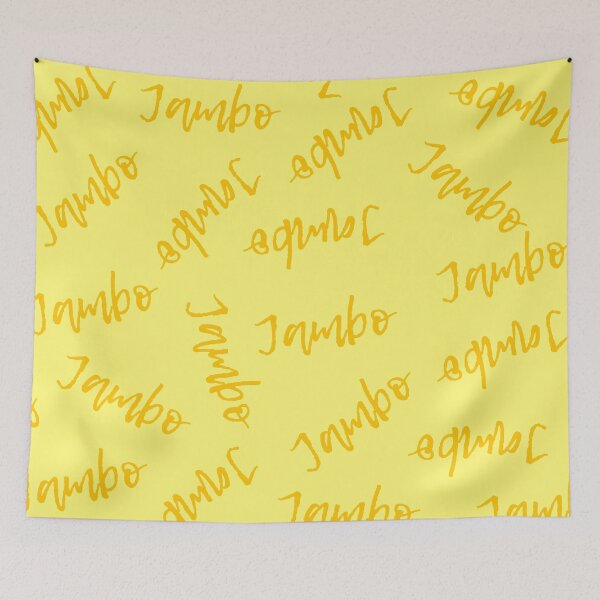 Jambo
Jambo
Jambo
Jambo
Jambo
Jambo
Jambo
Jambo
Jambo
Jambo
Jambo
Jambo
Jambo
Jambo
Jambo
Jambo
Jambo
Jambo
Jambo